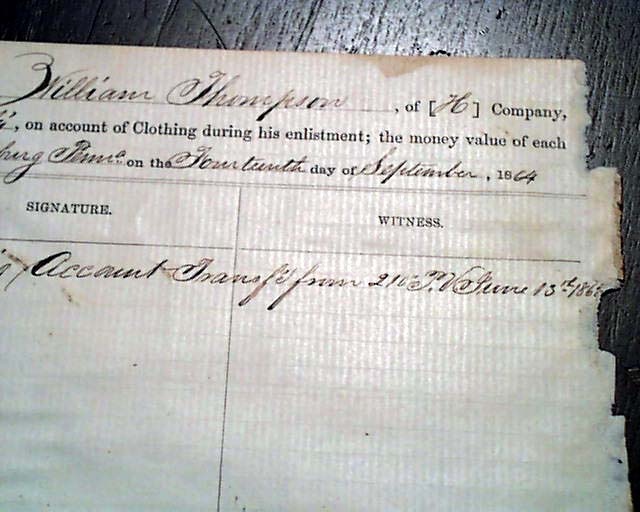 William Thompson, of [H] Company,
on account of Clothing during his enlistment; the money value of each
burg Penna. on the Fourteenth day of September, 1864
SIGNATURE.
WITNESS.
Account Transf'd from 210 P.V. June 13th 186